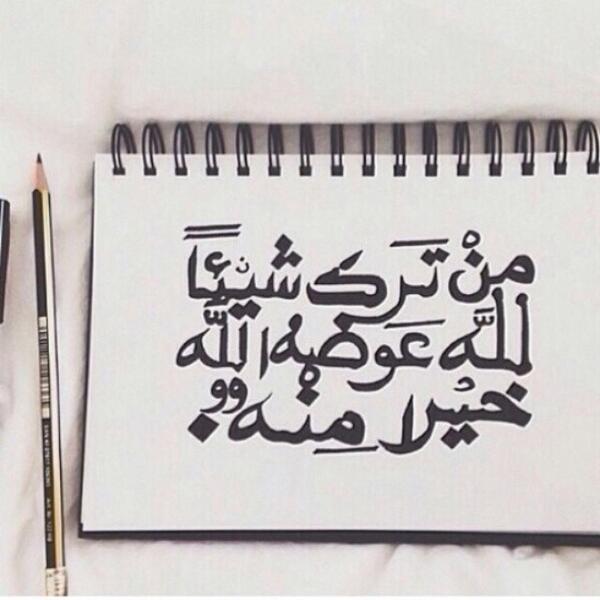 مِنْ تَرك شيْئاً
للَّه عَوضه الله
خيْرا مِنْه